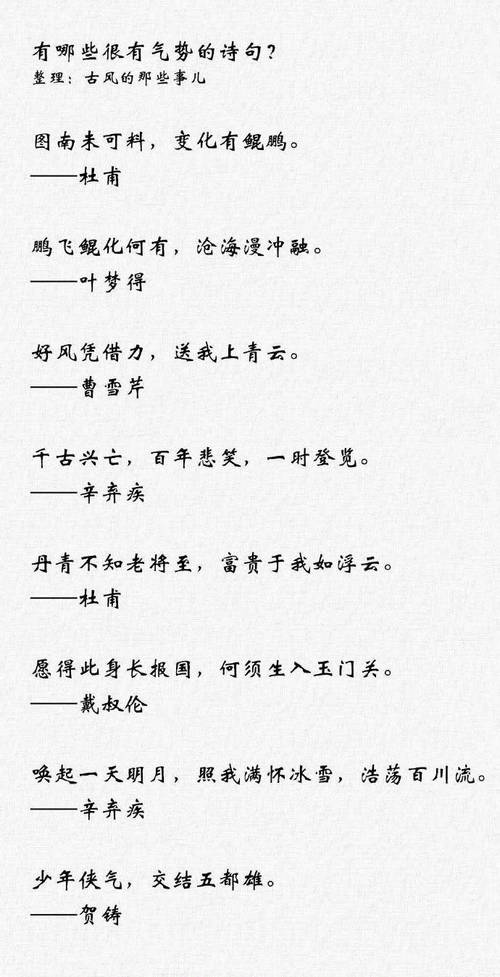 有哪些很有气势的诗句？
整理：古风的那些事儿
图南未可料，变化有鲲鹏。
——杜甫
鹏飞鲲化何有，沧海漫冲融。
——叶梦得
好风凭借力，送我上青云。
——曹雪芹
千古兴亡，百年悲笑，一时登览。
——辛弃疾
丹青不知老将至，富贵于我如浮云。
——杜甫
愿得此身长报国，何须生入玉门关。
——戴叔伦
唤起一天明月，照我满怀冰雪，浩荡百川流。
——辛弃疾
少年侠气，交结五都雄。
——贺铸